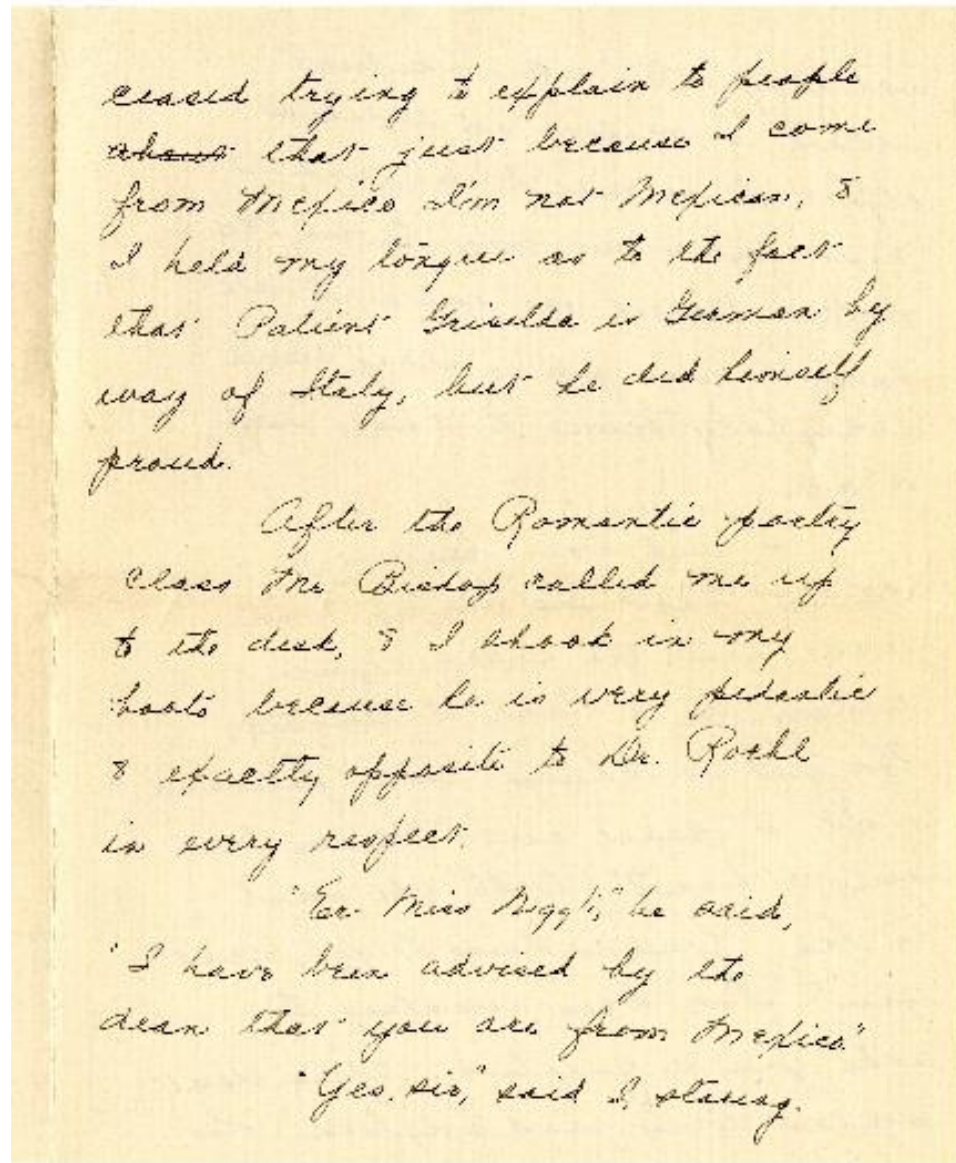 ceased trying to explain to people
about that just because I come
from Mexico I'm not Mexican, &
I held my tongue as to the fact
that Patient Griselda is German by
way of Italy, but he did himself
proud.
After the Romantic poetry
class Mr Bishop called me up
to the desk, & I shook in my
boots because he is very pedantic
& exactly opposite to Dr. Roehl
in every respect.
"Er- Miss Niggli," he said,
"I have been advised by the
dean that you are from Mexico."
"Yes, sir," said I, staring.